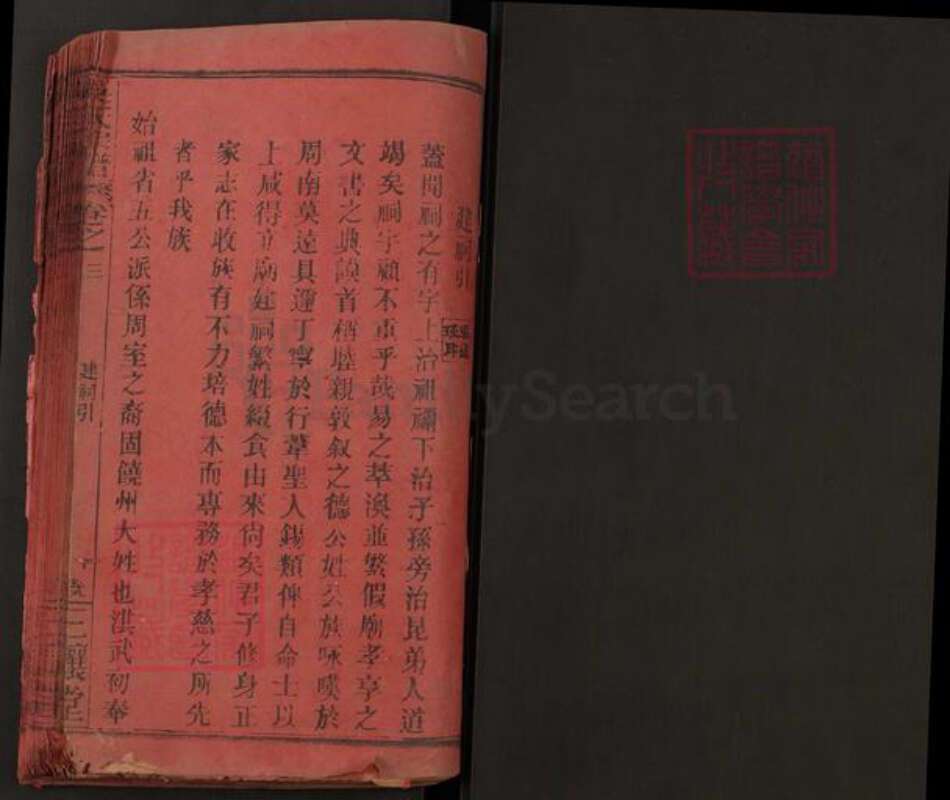 建祠引
蓋聞祠之有宇上治祖禰下治子孫旁治昆弟人道
竭矣祠宇顧不重乎哉易之萃渙並繫假廟孝享之
文書之典謨首稱睦親敦敘之德公姓公族咏嘆於
周南莫遠具邇丁寧於行葦聖人錫類俾自命士以
上咸得立廟建祠繁姓綴食由來尚矣君子修身正
家志在收族有不力培德本而專務於孝慈之所先
者乎我族
始祖省五公派係周室之裔固饒州大姓也洪武初奉
卷之三
建祠引
三讓堂